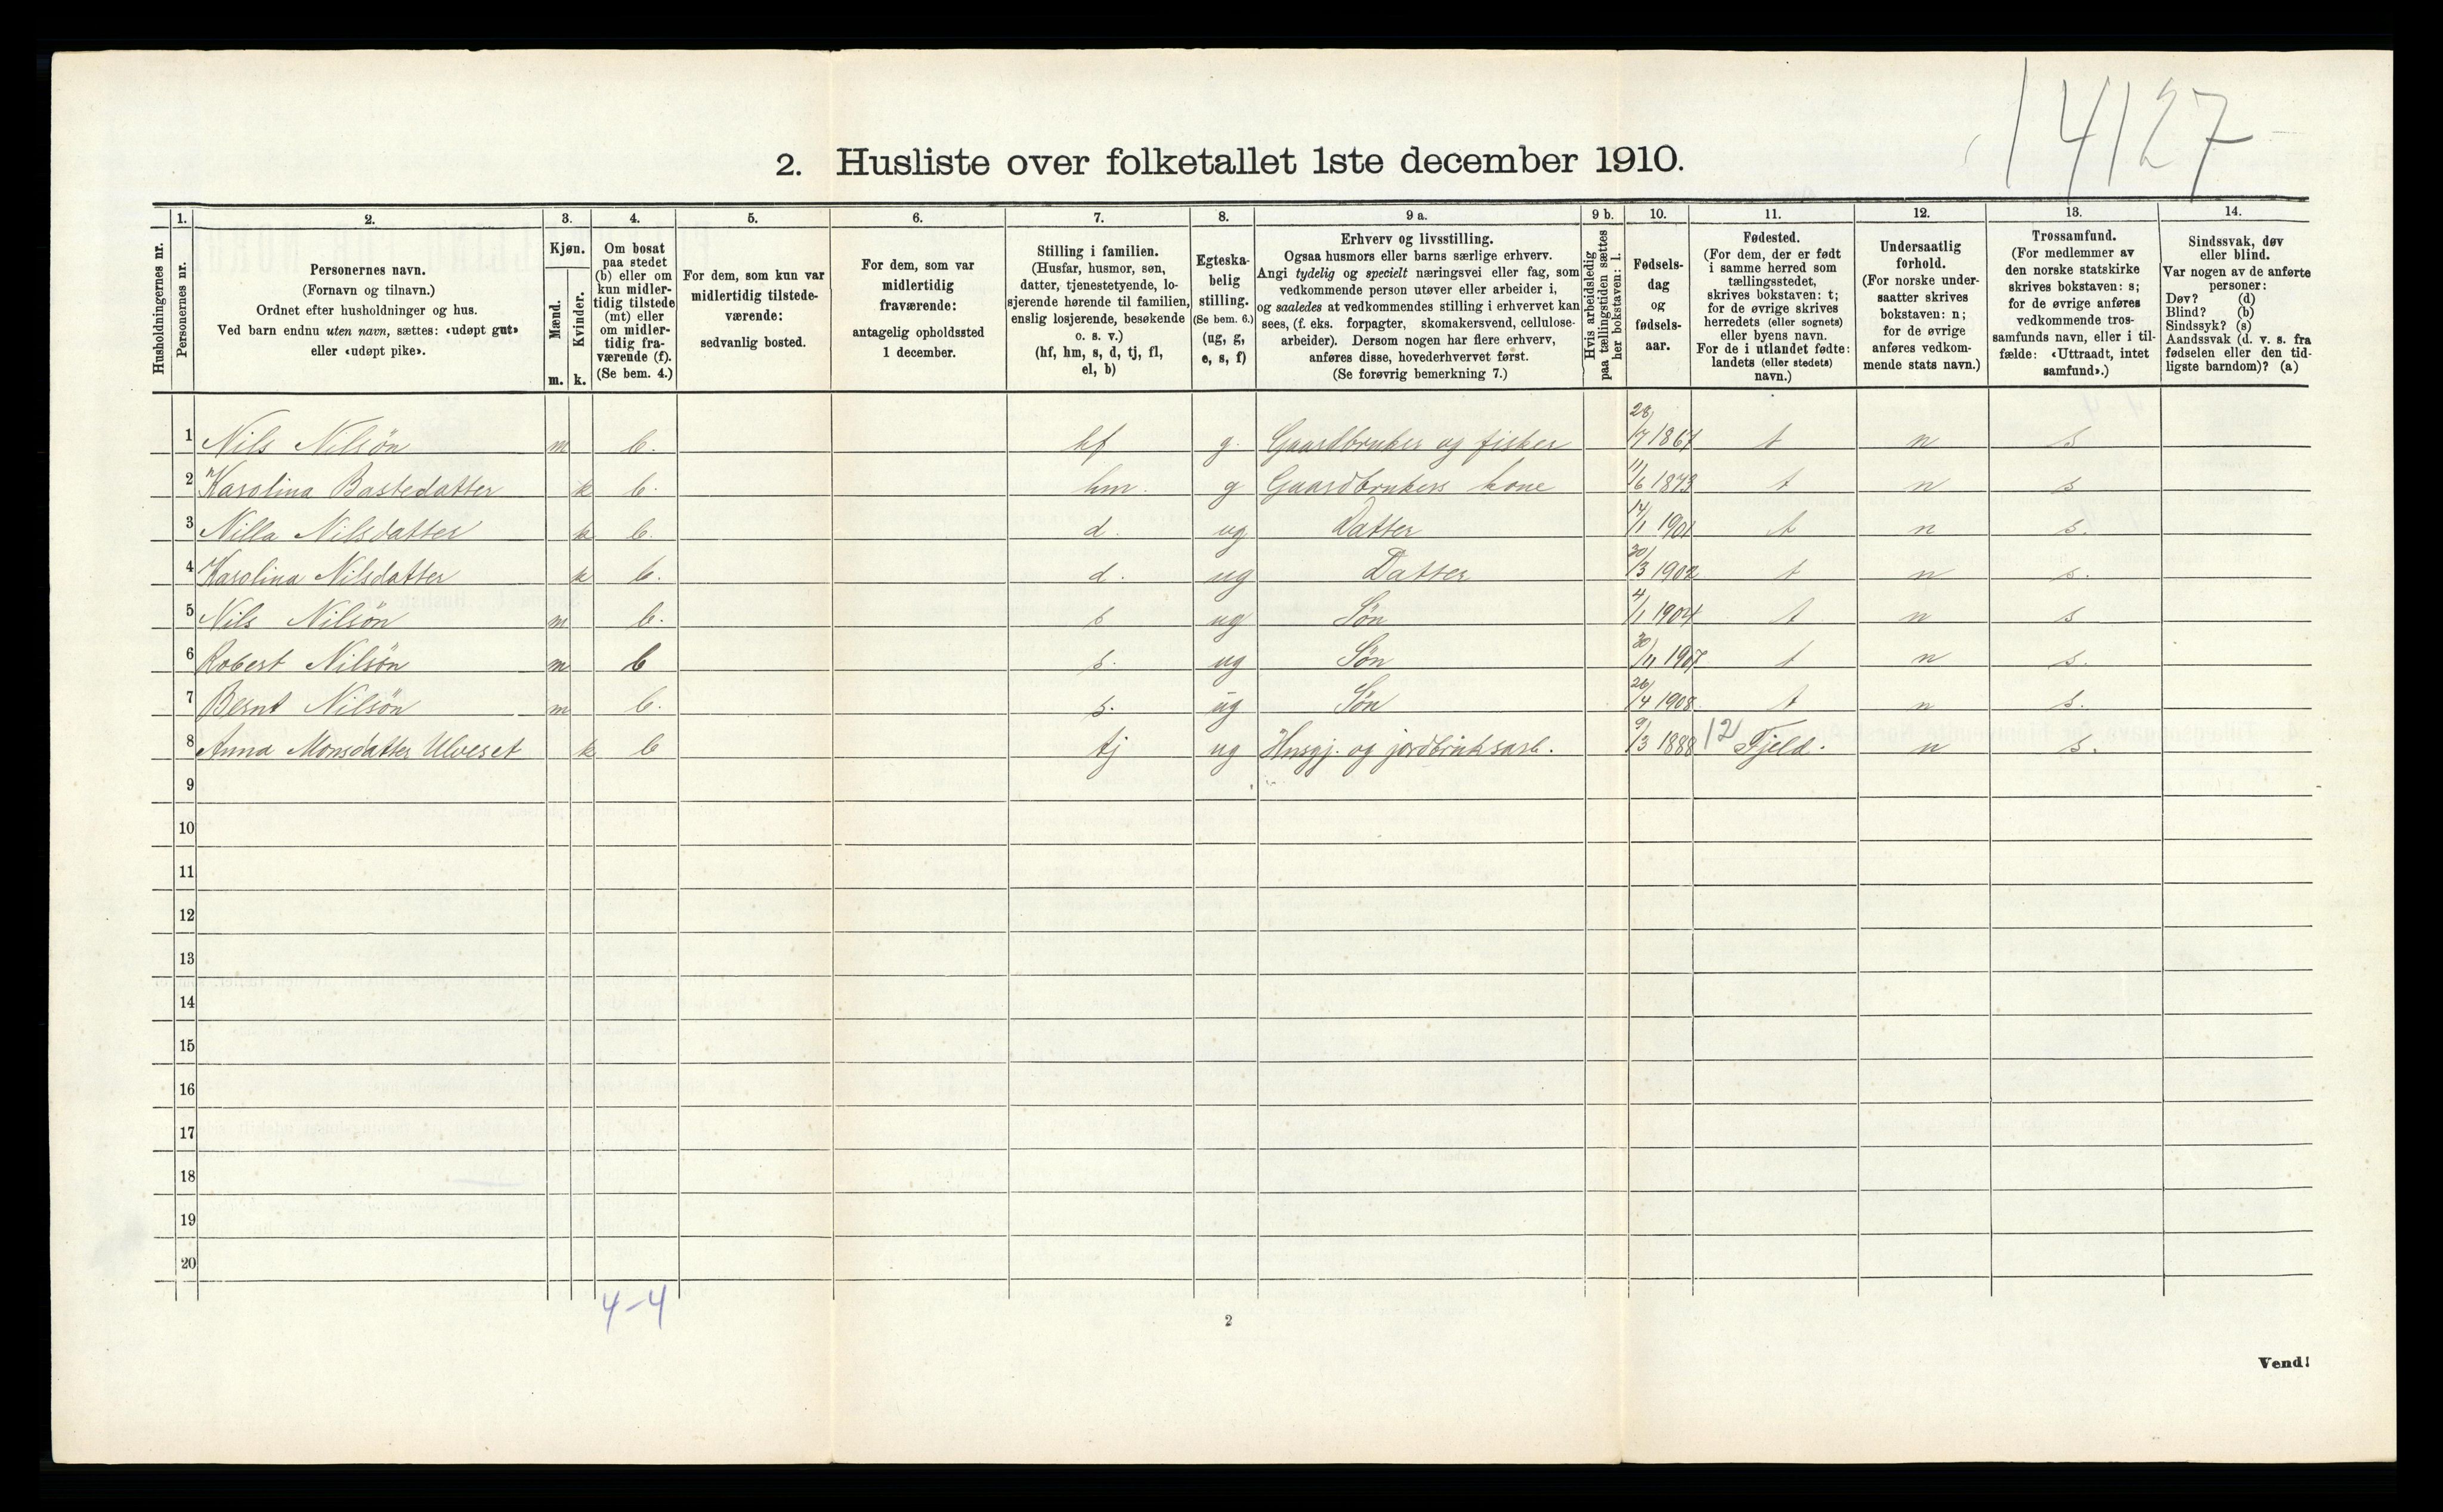 14127
2. Husliste over folketallet 1ste december 1910.
Husholdningernes nr.
1.
Personernes nr.
2.
Personernes navn.
(Fornavn og tilnavn.)
Ordnet efter husholdninger og hus.
Ved barn endnu uten navn, sættes: «udøpt gut»
eller «udøpt pike».
3.
Kjøn.
Mænd.
m.
Kvinder.
k.
4.
Om bosat
paa stedet
(b) eller om
kun midler-
tidig tilstede
(mt) eller
om midler-
tidig fra-
værende (f).
(Se bem. 4.)
5.
For dem, som kun var
midlertidig tilstede-
værende:
sedvanlig bosted.
6.
For dem, som var
midlertidig
fraværende:
antagelig opholdssted
1 december.
7.
Stilling i familien.
(Husfar, husmor, søn,
datter, tjenestetyende, lo-
sjerende hørende til familien,
enslig losjerende, besøkende
o. s. v.)
(hf, hm, s, d, tj, fl,
el, b)
8.
Egteska-
belig
stilling.
(Se bem. 6.)
(ug, g,
e, s, f)
9 a.
Erhverv og livsstilling.
Ogsaa husmors eller barns særlige erhverv.
Angi tydelig og specielt næringsvei eller fag, som
vedkommende person utøver eller arbeider i,
og saaledes at vedkommendes stilling i erhvervet kan
sees, (f. eks. forpagter, skomakersvend, cellulose-
arbeider). Dersom nogen har flere erhverv,
anføres disse, hovederhvervet først.
(Se forøvrig bemerkning 7.)
9 b.
Hvis arbeidsledig
paa tællingstiden sættes
her bokstaven: l.
10.
Fødsels-
dag
og
fødsels-
aar.
11.
Fødested.
(For dem, der er født
i samme herred som
tællingsstedet,
skrives bokstaven: t;
for de øvrige skrives
herredets (eller sognets)
eller byens navn.
For de i utlandet fødte:
landets (eller stedets)
navn.)
12.
Undersaatlig
forhold.
(For norske under-
saatter skrives
bokstaven: n;
for de øvrige
anføres vedkom-
mende stats navn.)
13.
Trossamfund.
(For medlemmer av
den norske statskirke
skrives bokstaven: s;
for de øvrige anføres
vedkommende tros-
samfunds navn, eller i til-
fælde: «Uttraadt, intet
samfund».)
14.
Sindssvak, døv
eller blind.
Var nogen av de anførte
personer:
Døv? (d)
Blind? (b)
Sindssyk? (s)
Aandssvak (d. v. s. fra
fødselen eller den tid-
ligste barndom)? (a)
1 Nils Nilsön m b. hf g. Gaardbruker og fisker 28/7 1867 t n s
2 Karolina Bastedatter k b. hm. g Gaardbrukers kone 11/6 1873 t n s
3 Nilla Nilsdatter k b. d. ug Datter 14/1 1901 t n s.
4 Karolina Nilsdatter k b. d. ug Datter 30/3 1902 t n s.
5 Nils Nilsön m b. s ug Søn 4/1 1904 t n s
6 Robert Nilsön m b s. ug Søn 30/11 1907 t n s.
7 Bernt Nilsön m b. s. ug Søn 26/4 1908 t n s.
8 Anna Monsdatter Ulveset k b tj ug Husgj. og jordbruksarb. 9/3 1888 12 Fjeld. n s.
9
10
11
12
13
14
15
16
17
18
19
20
4-4
2
Vend!